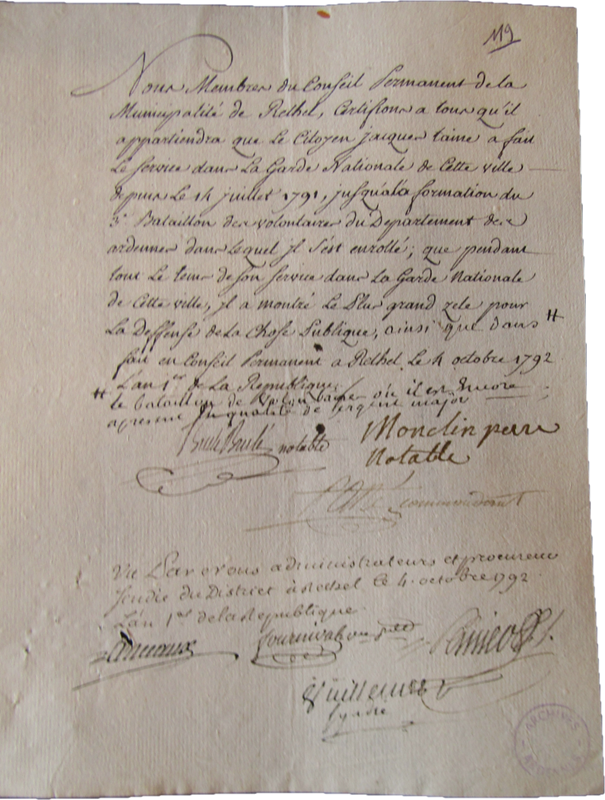 119
Nous Membres du Conseil Permanent de la
Municipalité de Rethel, Certifions a tous qu'il
appartiendra que Le Citoyen jacques taine a fait
Le Service dans La Garde Nationale de Cette ville
depuis Le 14 juillet 1791, jusqu'ala formation du
3e Bataillon des volontaires du Departement des
ardennes dans Lequel jl s'est enrollé; que pendant
tout Le tems de Son Service dans La Garde Nationale
de Cette ville, jl a montré Le Plus grand zele pour
La Deffense de La Chose Publique, ainsi que dans #
fait en Conseil Permanent a Rethel Le 4 octobre 1792
L'an 1er de La Republique
# le bataillon de où il est Encore
a present En qualité de sergent major
notable
Monclin pere
Notable
commandant
Vu Par nous administrateurs et procureur
Sindic du District à Rethel le 4. octobre 1792
L'an 1er de la Republique
Fournival
Guillemes
Syndic
ARCHIVES